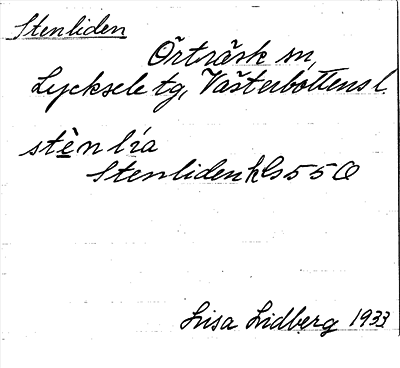 Stenliden
Örträsk sn,
Lycksele tg, Västerbottens l.
stèn lía
Stenliden hGs55Q
Lisa Lidberg 1933